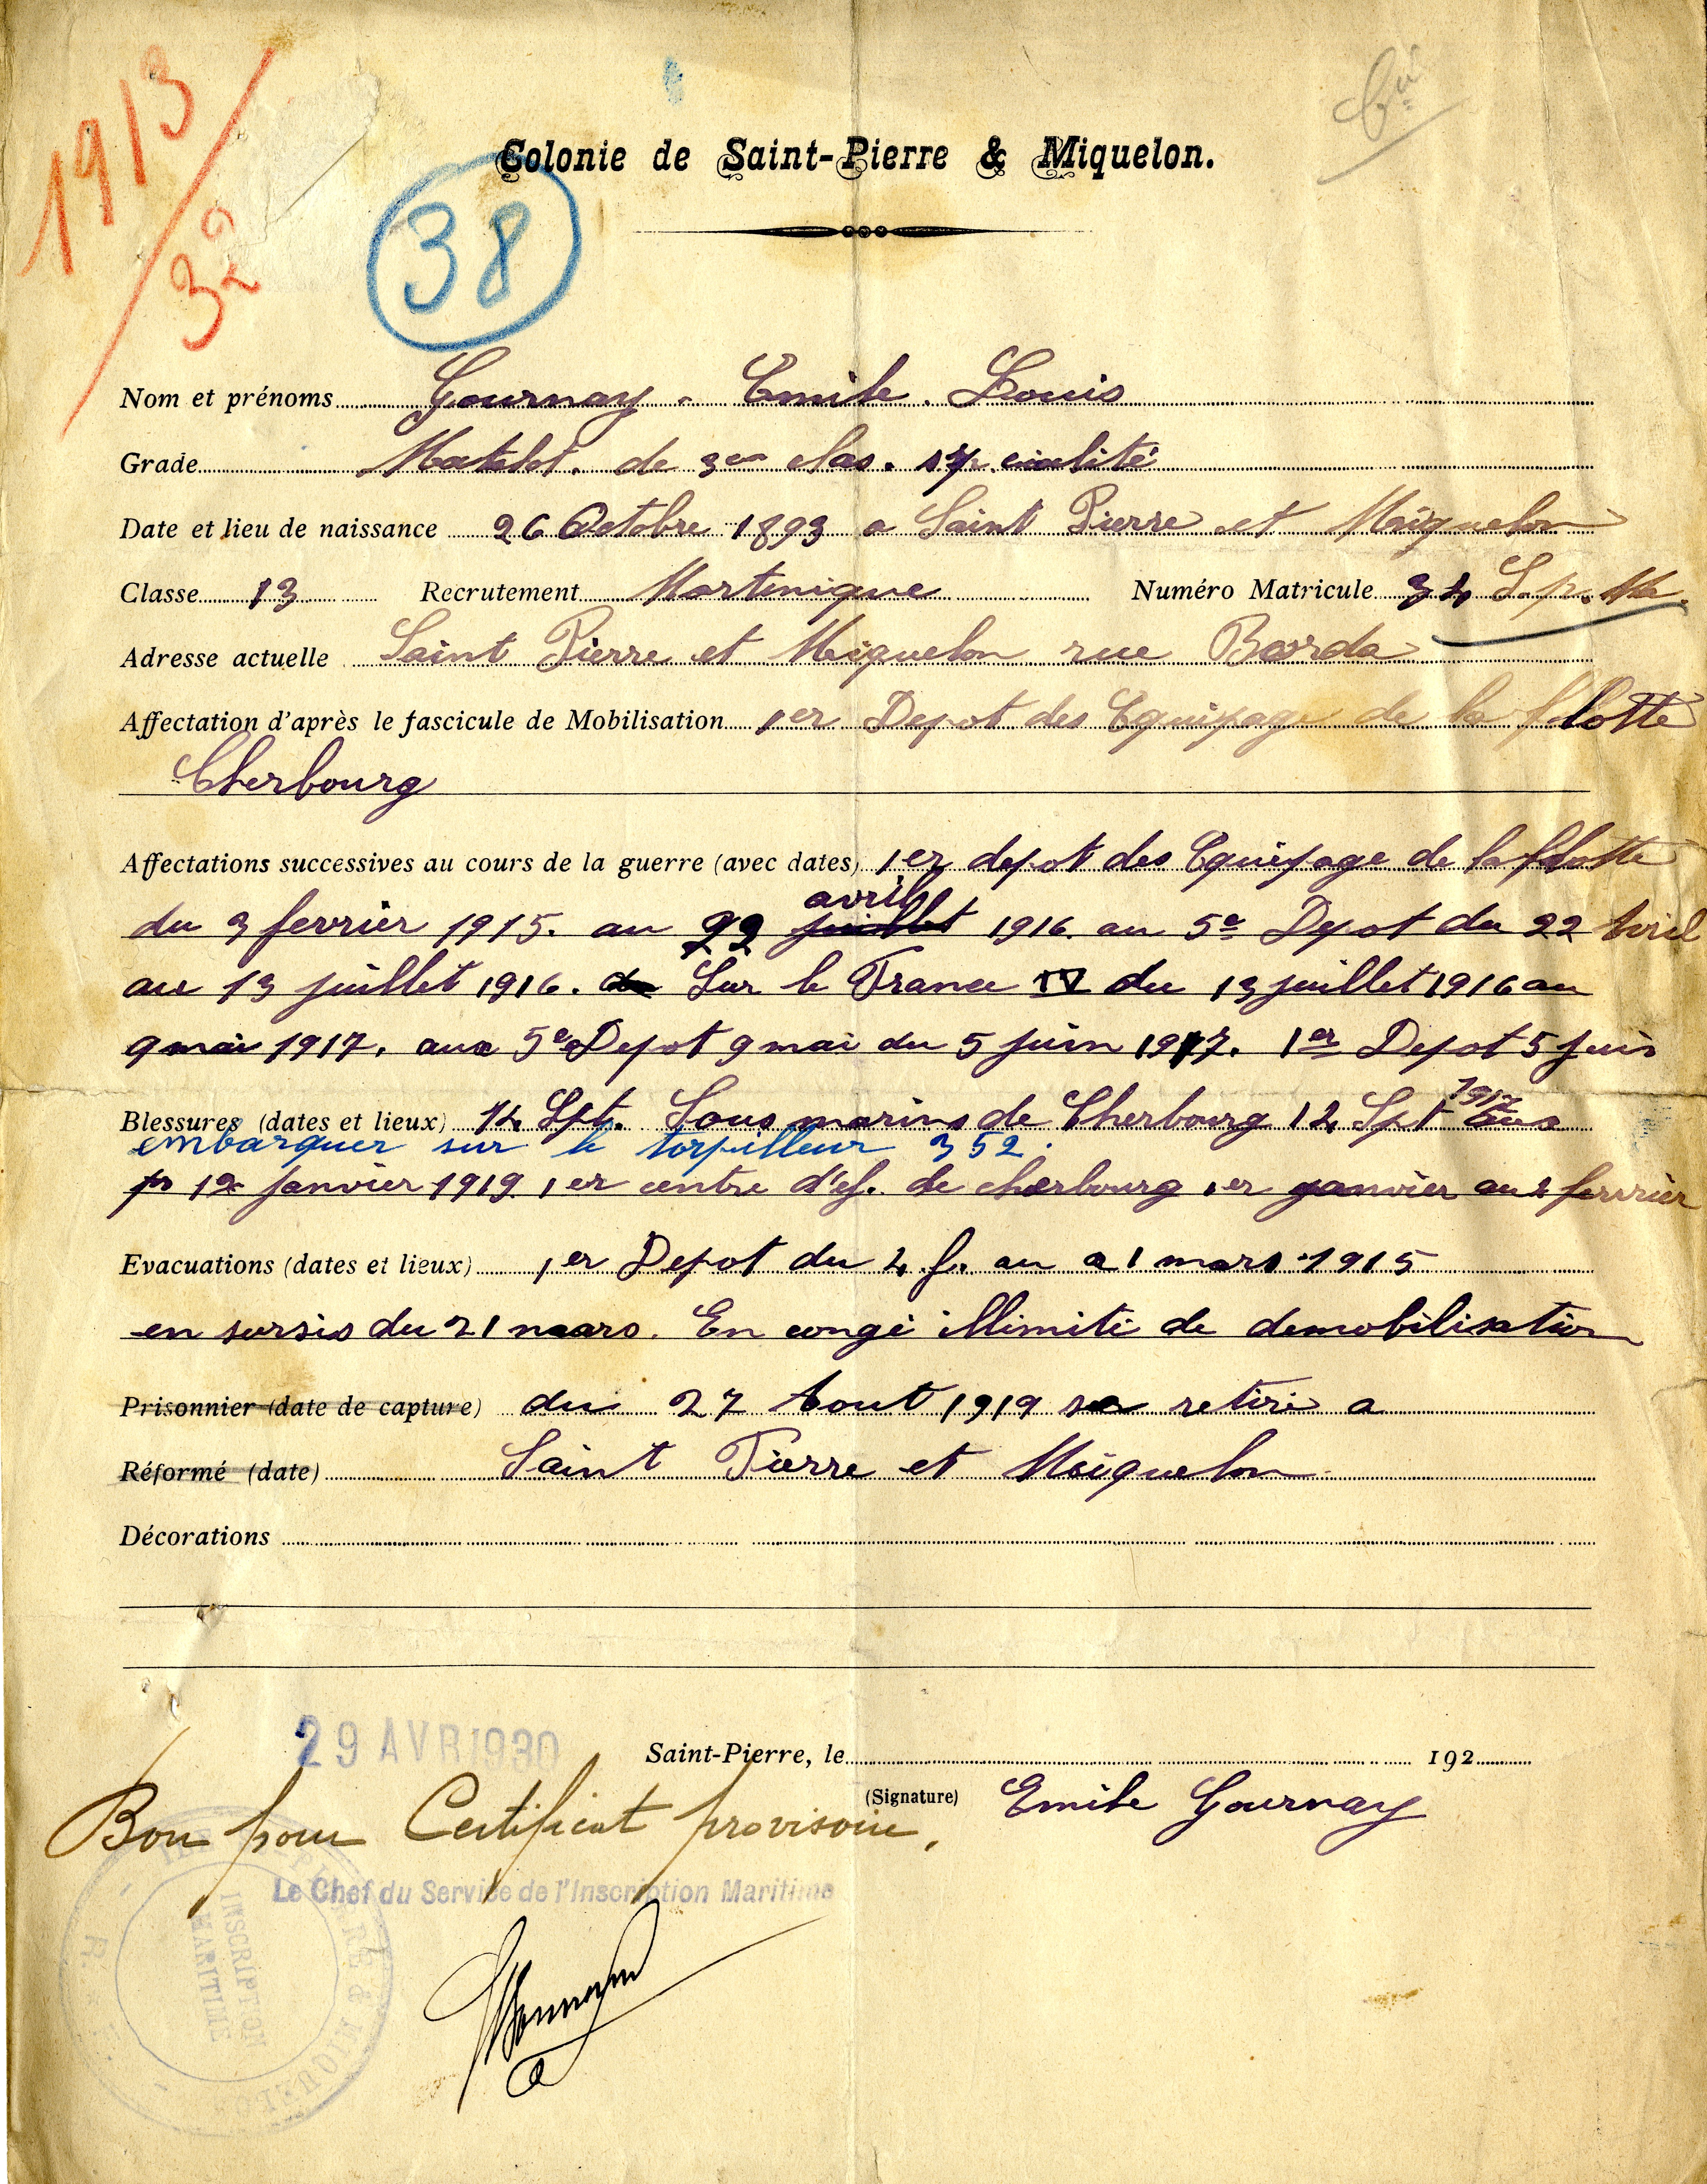 1913
32
38
Colonie de Saint-Pierre & Miquelon.
Nom et prénoms Gournay. Emile. Louis
Grade Matelot. de 3em clas. spécialité
Date et lieu de naissance 26 Octobre 1893 a Saint Pierre et Miquelon
Classe 13 Recrutement Martinique Numéro Matricule 34 S.p. M.
Adresse actuelle Saint Pierre et Miquelon rue Borda
Affectation d'après le fascicule de Mobilisation 1er Depot des Equipage de la flotte
Cherbourg
Affectations successives au cours de la guerre (avec dates) 1er depot des Equipage de la flotte
avril
du 3 fevrier 1915. au 22 juillet 1916. au 5e Depot du 22 Avril
au 13 juillet 1916. Sur le France IV du 13 juillet 1916 au
9 mai 1917. aux 5e Depot 9 mai du 5 juin 1917. 1er Depot 5 juin
1917
Blessures (dates et lieux) 14 Spt. Sous marins de Cherbourg 14 Spt
embarquer sur le torpilleur 352.
janvier 1919. 1er centre d'ef. de cherbourg 1er janvier au 4 fervrier
Evacuations (dates et lieux) 1er Depot du 4 f. au 21 mars 1915
en sursis du 21 mars. En congé illimité de demobilisation
Prisonnier (date de capture) du 27 Aout 1919 se retiré a
Réformé (date) Saint Pierre et Miquelon
Décorations
29 AVR 1930
Saint-Pierre, le 192
(Signature) Emile Gournay
Bon pour Certificat provisoire.
Le Chef du Service de l'Inscription Maritime
INSCRIPTION
MARITIME